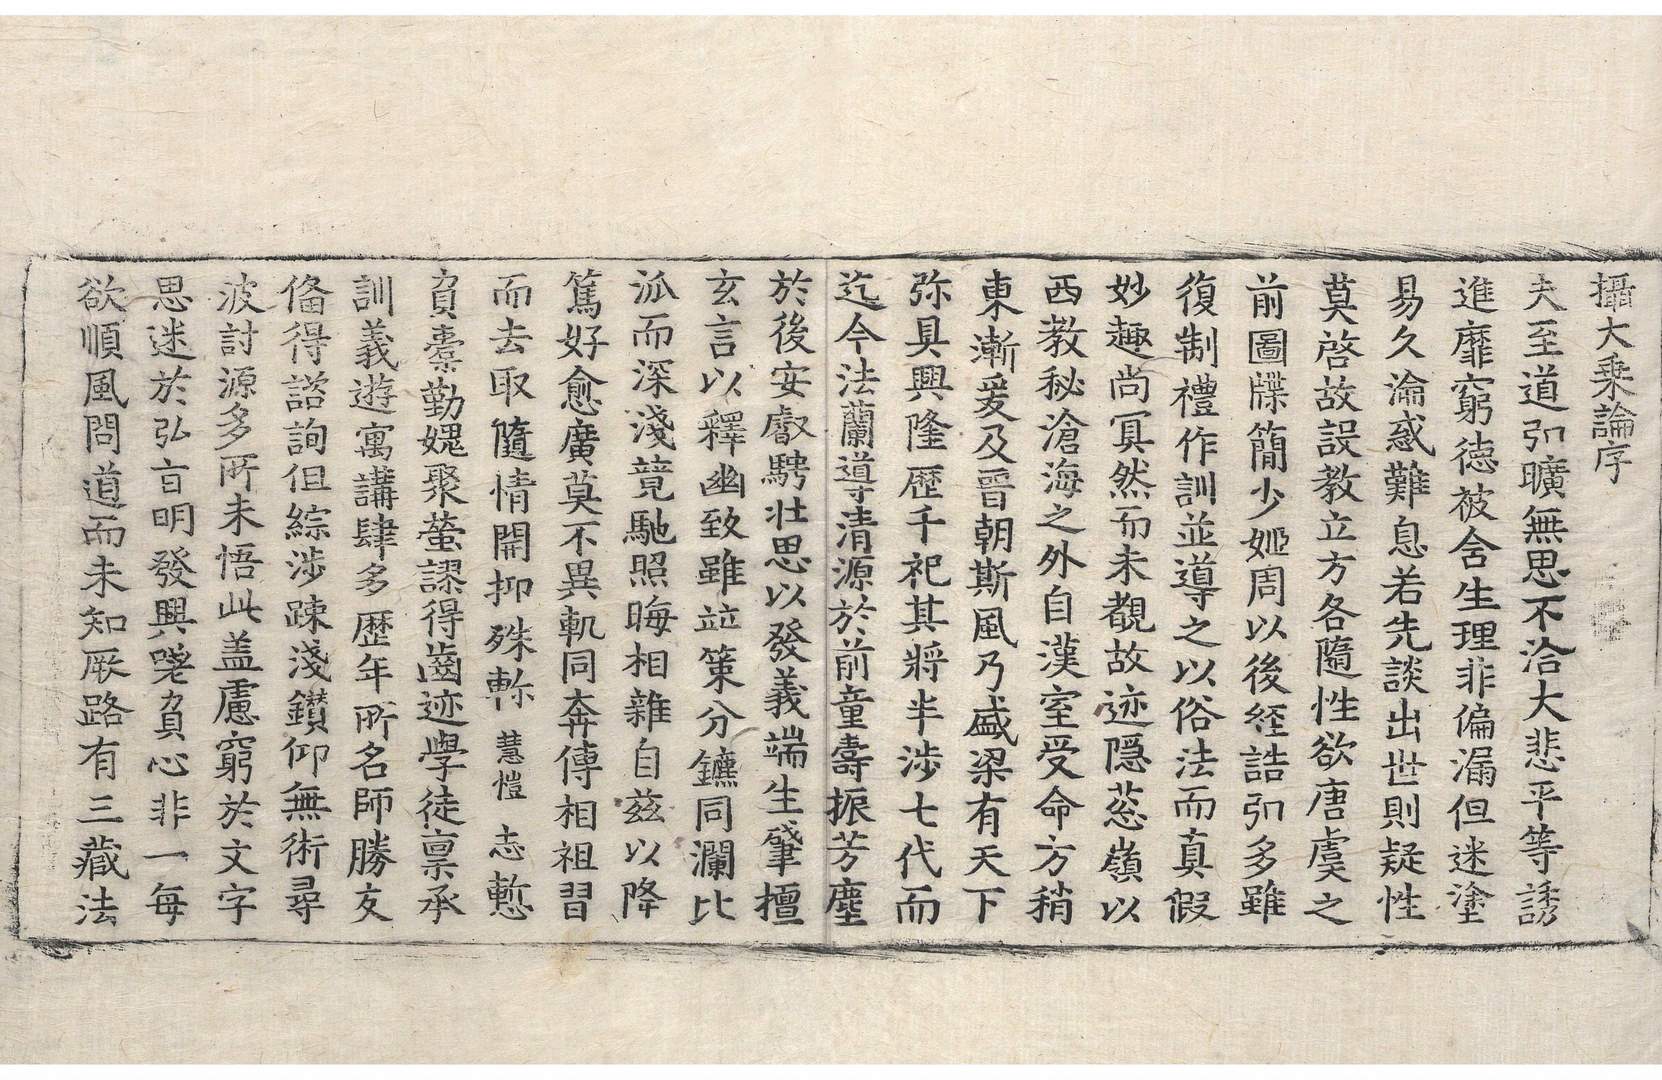 攝大乗論序
夫至道弘曠無思不洽大悲平等誘
進靡窮徳被含生理非偏漏但迷塗
易久淪惑難息若先談出世則疑性
莫啓故設教立方各隨性欲唐虞之
前圖牒簡少姬周以後經誥弘多雖
復制禮作訓並導之以俗法而真假
妙趣尚冥然而未覩故迹隱葱嶺以
西教秘滄海之外自漢室受命方稍
東漸爰及晉朝斯風乃盛梁有天下
弥具興隆歷千祀其將半涉七代而
迄今法蘭導清源於前童壽振芳塵
於後安叡騁壯思以發義端生肇擅
玄言以釋幽致雖竝策分鑣同瀾比
派而深淺競馳照晦相雜自茲以降
篤好愈廣莫不異軌同奔傳相祖習
而去取隨情開抑殊軫慧愷志慙
負橐勤媿聚螢謬得齒迹學徒稟承
訓義遊寓講肆多歷年所名師勝友
俻得諮詢但綜涉踈淺鑚仰無術尋
波討源多所未悟此盖慮窮於文字
思迷於弘旨明發興嗟負心非一每
欲順風問道而未知厥路有三藏法